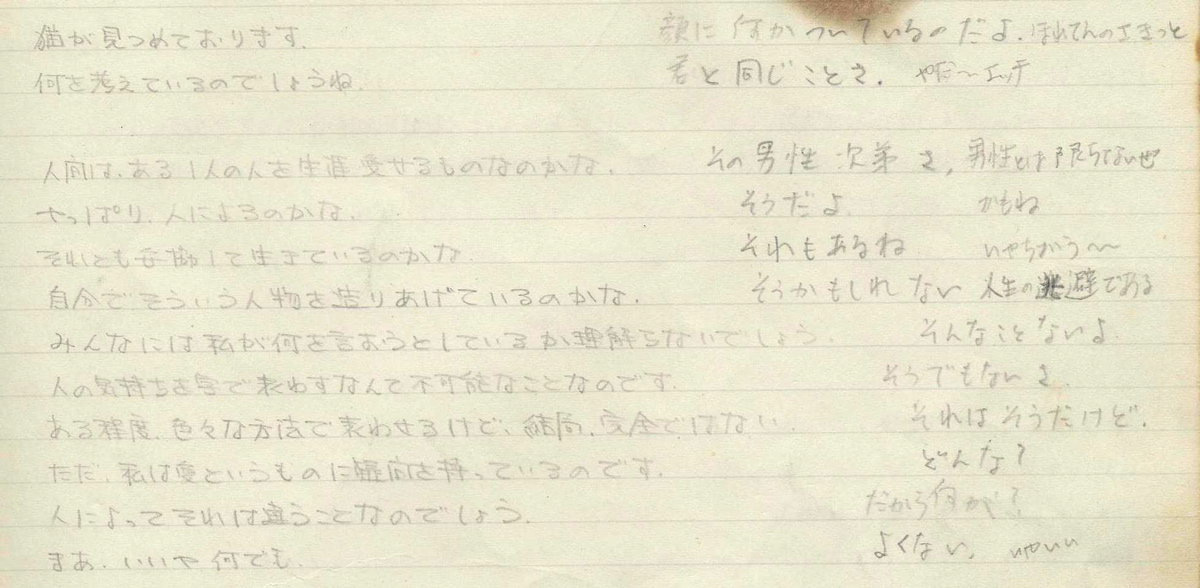 猫が見つめております。 顔に何かついているのだよ。ほれてんのさきっと
何を考えているのでしょうね。 君と同じことさ。 やだ〜エッチ
人間は、ある1人の人を生涯愛せるものなのかな。 その男性次第さ、男性とは限らないぜ
やっぱり、人によるのかな。 そうだよ かもね
それとも妥協して生きているのかな。 それもあるね いやちがう〜
自分でそういう人物を造りあげているのかな。 そうかもしれない 人生の逃避である
みんなには私が何を言おうとしているか理解らないでしょう。 そんなことないよ。
人の気持ちを字で表わすなんて不可能なことなのです。 そうでもないさ。
ある程度、色々な方法で表わせるけど、結局、完全ではない。 それはそうだけど。
ただ、私は愛というものに疑問を持っているのです。 どんな?
人によってそれは違うことなのでしょう。 だから何が?
まあ、いいや何でも。 よくない。 いやいい